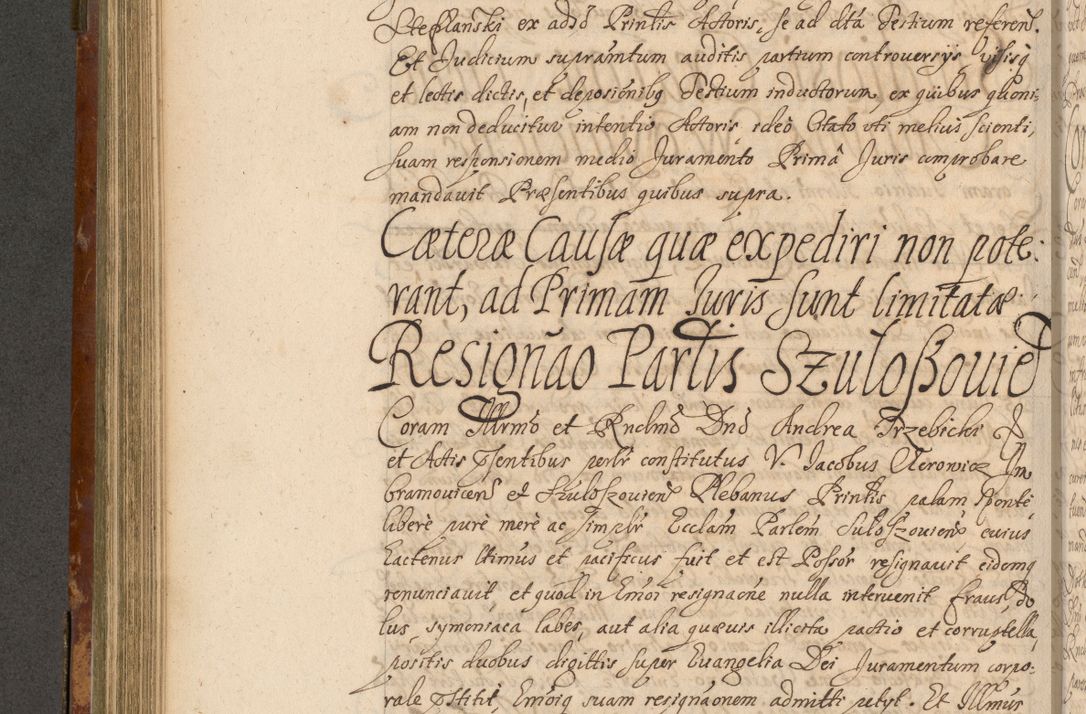 Stepłanski ex addō Printis Actoris, se ad dtā Testium referenʼ.
Et Judicium supramtum auditis partium controuersijs, visisq
et lectis dictis, et deposionibq Testium inductorum ex quibus quoni-
am non deducitur intentio Actoris ideo Ctato vti melius scienti,
suam responsionem medio Juramento Primā Juris comprobare
mandauit Præsentibus quibus supra.
Cæteræ Causæ quæ expediri non pote-
rant, ad Primam Juris sunt limitatæ.
Resignāo Parlis Szuloßouieñ
Coram Illrmo et Rndmō Dnō Andrea Trzebicki
et Actis pſentibus perlr constitutus V. Jacobus
bramouicenʼ et Szuloszouienʼ Plebanus Printis, palam sponte
liberè purè merè ac simplr Ecclam Parlem Suloszouienʼ cuius
hactenus ltimus et pacificus fuit et est Possor resignauit eidemq
renunciauit, et quod in hmoi resignaone nulla interuenit fraus, do
lus, symoniaca labes, aut alia quæuis illicita pactio et corruptella,
positis duobus digittis super Euangelia Dei Juramentum corpo-
rale pstitit, hmoiq suam resignaonem admitti petyt. Et Illmus